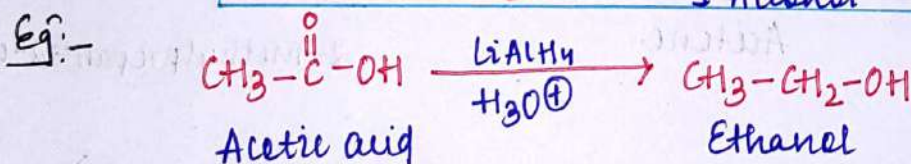 Eg:-
O
CH3-C-OH LiAlH4 CH3-CH2-OH
H3O⊕
Acetic acid Ethanol